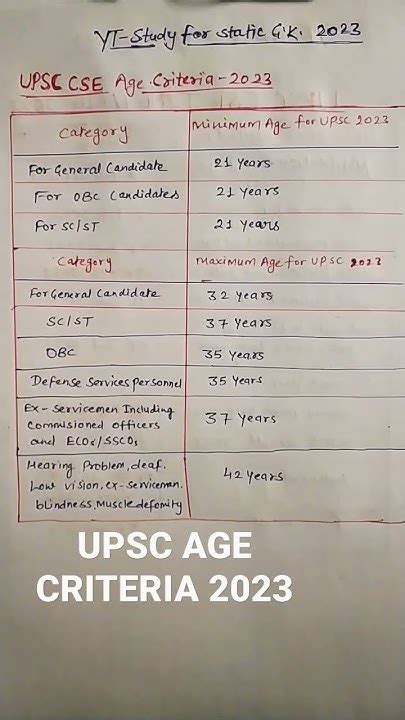 YT-Study for Static G.K. 2023
UPSC CSE Age Criteria-2023
Category Minimum Age for UPSC 2023
For General Candidate 21 Years
For OBC Candidates 21 Years
For SC/ST 21 Years
Category Maximum Age for UPSC 2023
For General Candidate 32 Years
SC/ST 37 Years
OBC 35 Years
Defense Services personnel 35 Years
Ex-Servicemen Including
Commisioned officers 37 Years
and ECOs/SSCOs
Hearing Problem, deaf.
Low vision, ex-serviceman. 42 Years
blindness, Muscle defomity
UPSC AGE
CRITERIA 2023